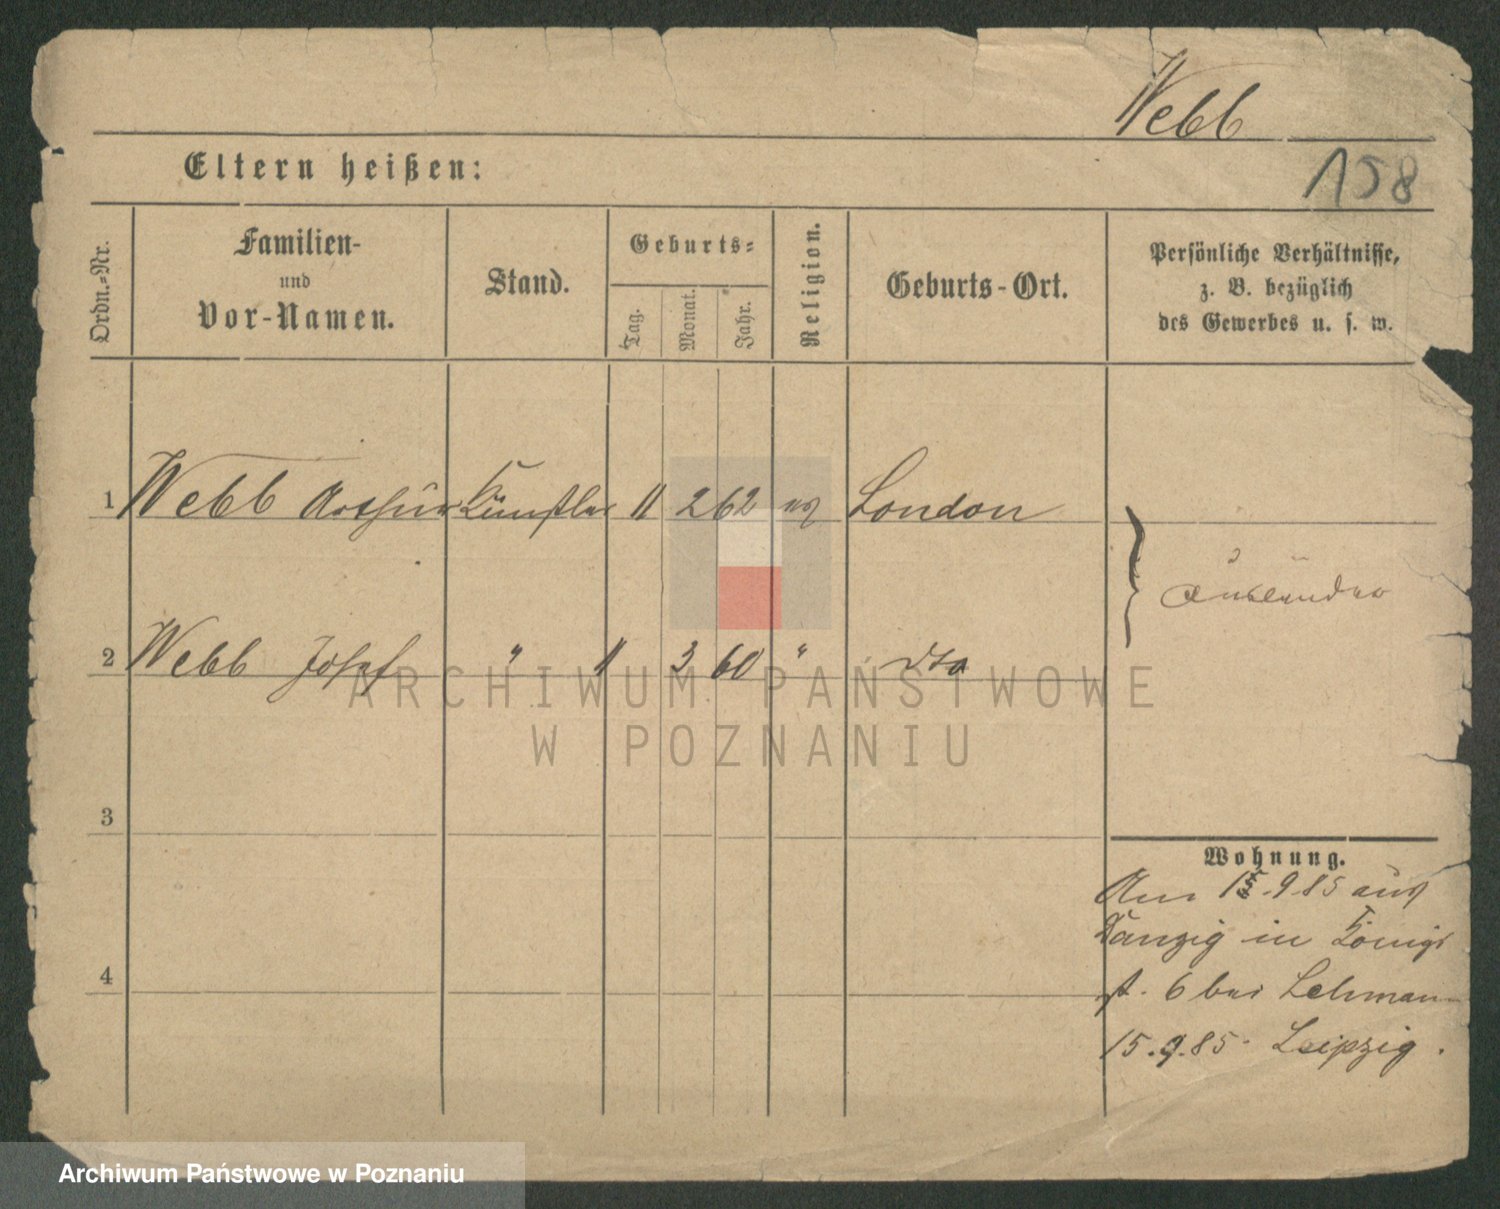 Webb
158
Eltern heißen:
Ordn.-Nr.
Familien-
und
Vor-Namen.
Stand.
Geburts-
Tag.
Monat.
Jahr.
Religion.
Geburts-Ort.
Persönliche Verhältnisse,
z. B. bezüglich
des Gewerbes u. s. w.
1 Webb Arthur Künstler 11 2 62 London
Ausländer
2 Webb Josef " 3 60 " dto
ARCHIWUM PAŃSTWOWE
W POZNANIU
3
Wohnung.
Am 9 85 aus
Danzig in Königs
st. 6 bei Lehmann
4
15.9.85 Leipzig.
Archiwum Państwowe w Poznaniu